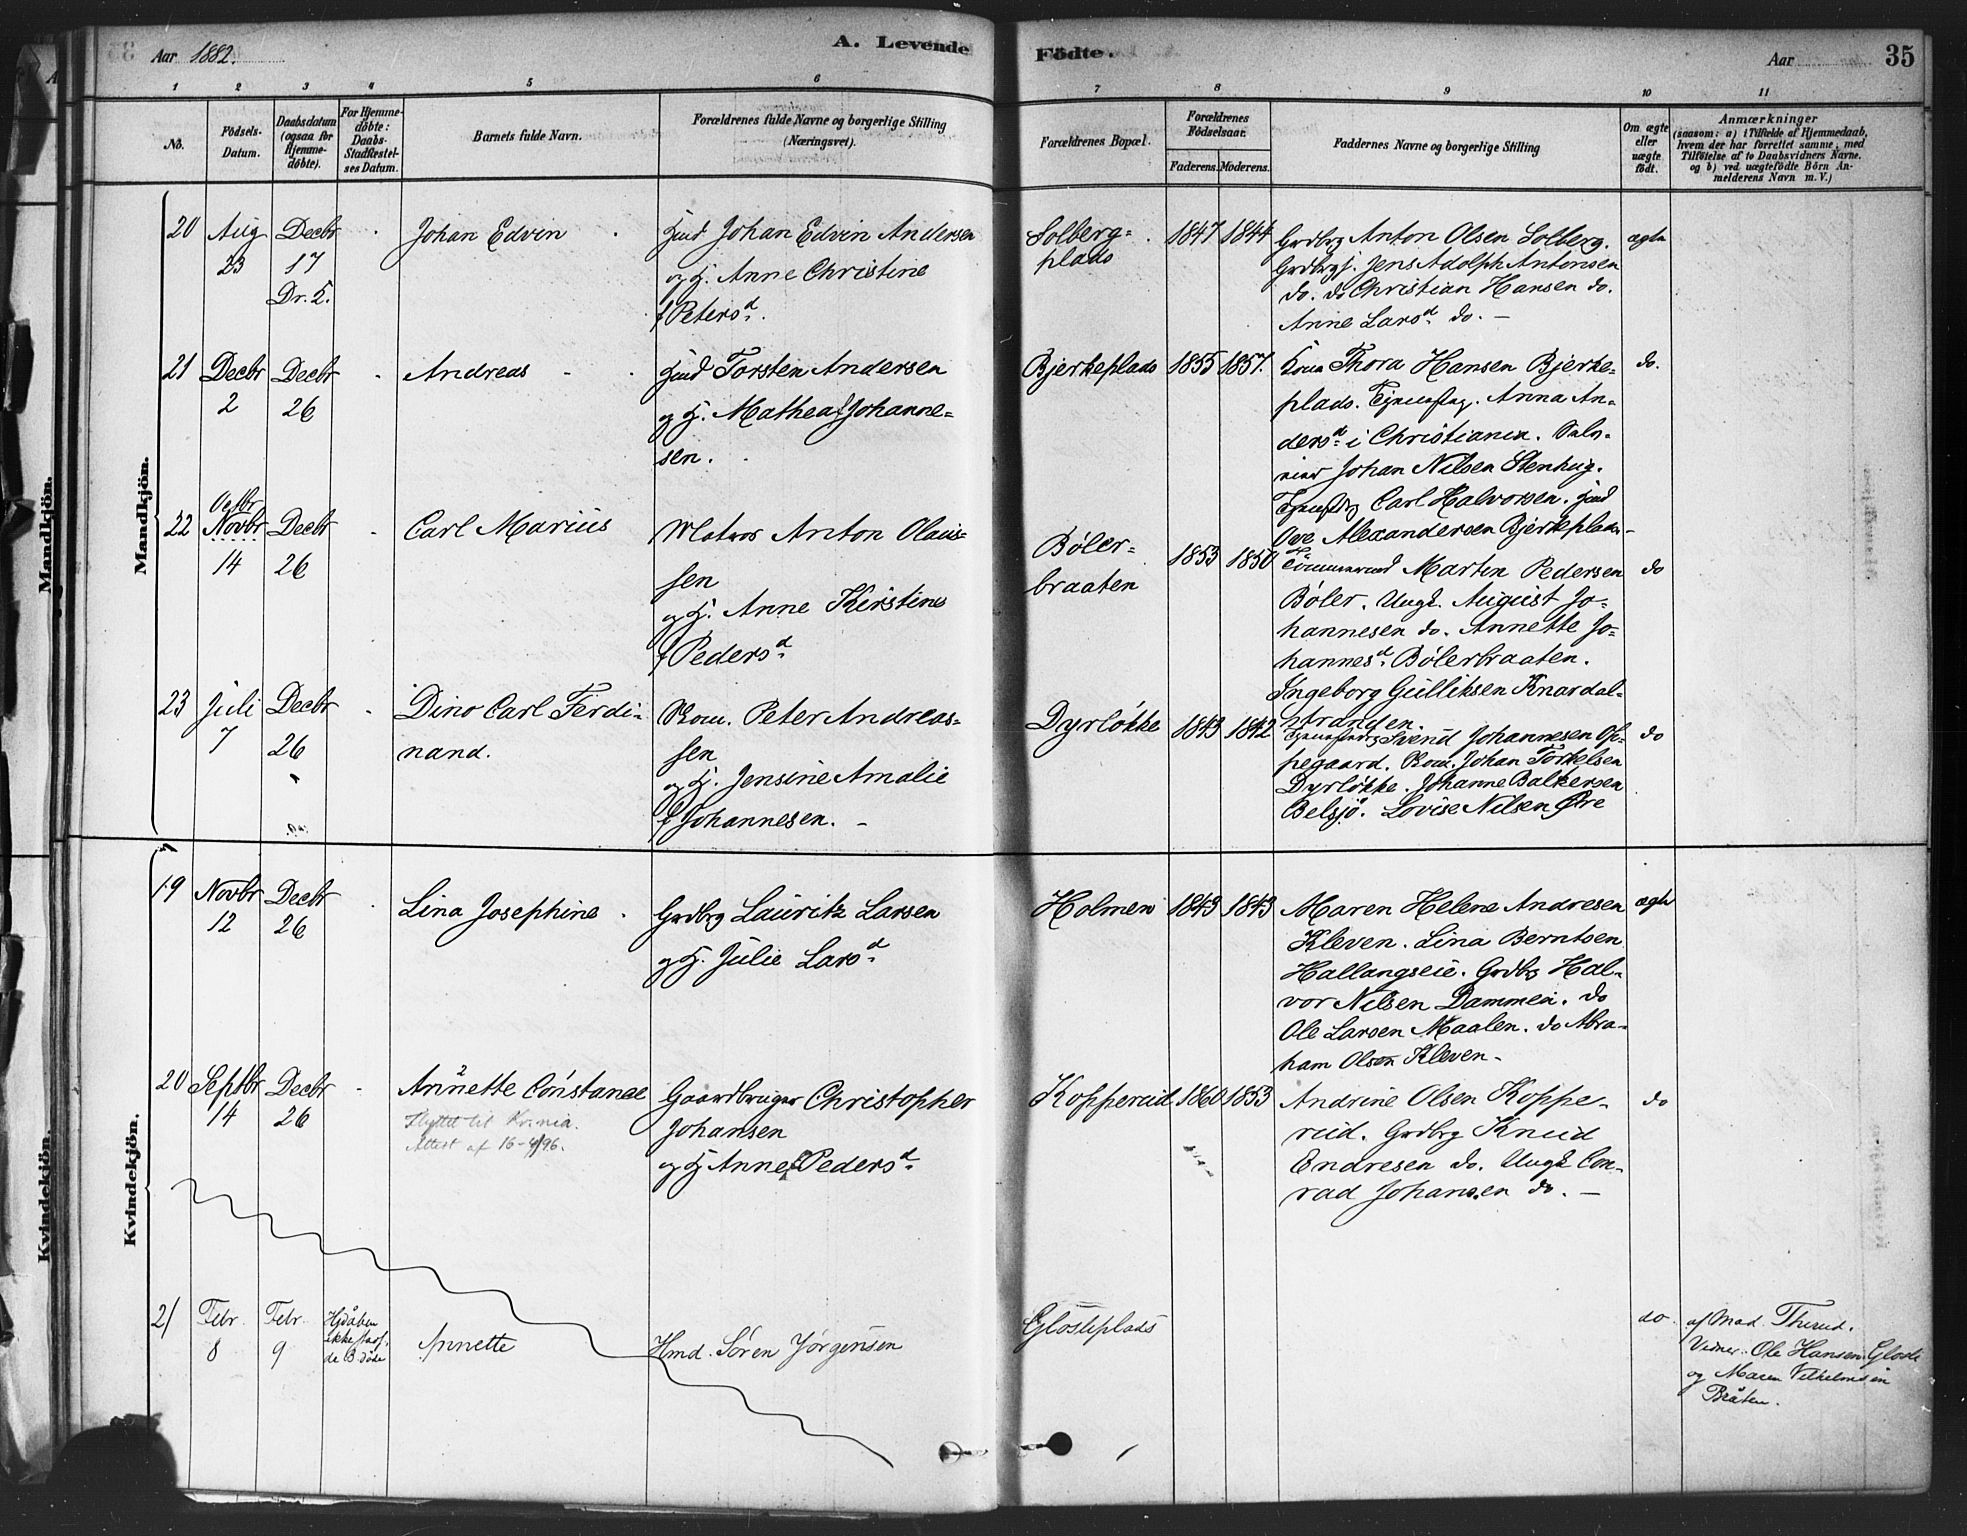 Aar 1882.
A. Levende
Födte.
Aar
35
1 2 3 4 5 6 7 8 9 10 11
No.
Födsels-
Datum.
Daabsdatum
(ogsaa for
Hjemme-
döbte).
For Hjemme-
döbte:
Daabs-
Stadfæstel-
ses Datum.
Barnets fulde Navn.
Forældrenes fulde Navne og borgerlige Stilling
(Næringsvei).
Forældrenes Bopæl.
Forældrenes
Födselsaar.
Faderens.
Moderens.
Faddernes Navne og borgerlige Stilling
Om ægte
eller
uægte
födt.
Anmærkninger
(saasom: a) i Tilfælde af Hjemmedaab,
hvem der har forrettet samme, med
Tilföielse af to Daabsvidners Navne,
og b) ved uægtefödte Börn An-
melderens Navn m. V.)
Mandkjön.
Mandkjön.
20
Aug
23
Decbr
17
Dr. 5.
Johan Edvin
Johan Edvin Andersen
og H. Anne Christine
f Petersd.
Solberg-
plads
1847
1844
Grdbrg Anton Olsen Solberg.
Grdbrgj. Jens Adolph Antonsen
do. do Christian Hansen do.
Anne Larsd. do. –
ægte
21
Decbr
2
Decbr
26
Andreas
Torsten Andersen
og H. Mathea f Johanne-
sen.
Bjerkeplads
1855
1857.
Kone Thora Hansen Bjerke-
plads. Anna An-
dersd. i Christiania.
Johan Nilsen Stenhug.
Carl Halvorsen.
Ove Alexandersen Bjerkeplads –
do.
22
Octbr
Novbr
14
Decbr
26
Carl Marius
Matros Anton Olaus-
sen
og H. Anne Kirstine
f Pedersd.
Bøler-
braaten
1853
1850
Martin Pedersen
Bøler. Ungk. August Jo-
hannesen do. Annette Jo-
hannesd. Bølerbraaten.
Ingeborg Gulliksen Knardal-
stranden.
do
23
Juli
7
Decbr
26
Dino Carl Ferdi-
nand.
Peter Andreas-
sen
og H. Jensine Amalie
f Johannesen. –
Dyrløkke
1843
1842
Svend Johannesen Op-
pegaard. Johan Torkelsen
Dyrløkke. Johanne Balkersen
Belsjø. Lovise Nilsen Øre
do
Kvindekjön.
Kvindekjön.
19
Novbr
12
Decbr
26
Lina Josephine
Grdbrg Lauritz Larsen
og H. Julie Larsd.
Holmen
1843
1843
Maren Helene Andresen
Kleven. Lina Berntsen
Hallangseie. Grdbrg Hal-
vor Nilsen Dammen. do
Ole Larsen Maalen. do Abra-
ham Olsen Kleven –
ægte
20
Septbr
14
Decbr
26
Annette Constance
Flyttet til Kr.nia.
Attest af 16-4/96.
Gaardbruger Christopher
Johansen
og H Anne f Pedersd.
Kopperud
1860
1853
Andrine Olsen Koppe-
rud. Grdbrg Knud
Endresen do. Ungk Con-
rad Johansen do. –
do
21
Febr
8
Febr
9
Hjdåben
ikke
Annette
Hmd. Søren Jørgensen
Glosliplads
do
af Mad. Therud.
Vidner. Ole Hansen Glosli
og Maren Vilhelmsen
Bråten.